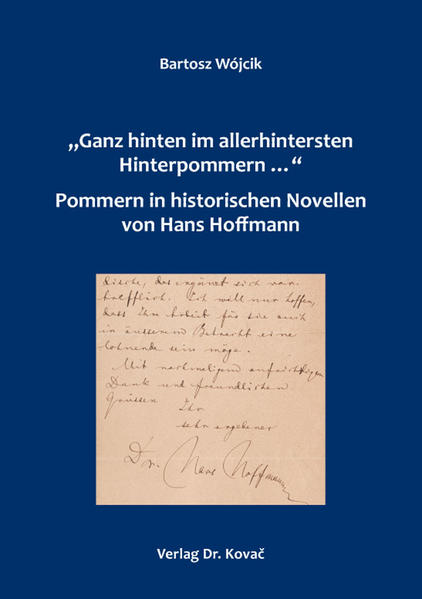 Bartosz Wójcik
„Ganz hinten im allerhintersten
Hinterpommern …“
Pommern in historischen Novellen
von Hans Hoffmann
dische, das ergänzt sich vor-
trefflich. Ich will nur hoffen,
dass Ihre Arbeit für sie auch
in äusserem Betracht eine
lohnende sein möge.
Mit nochmaligem aufrichtigen
Dank und freundlichen
Grüssen
Ihr
sehr ergebener
Dr. Hans Hoffmann
Verlag Dr. Kovač